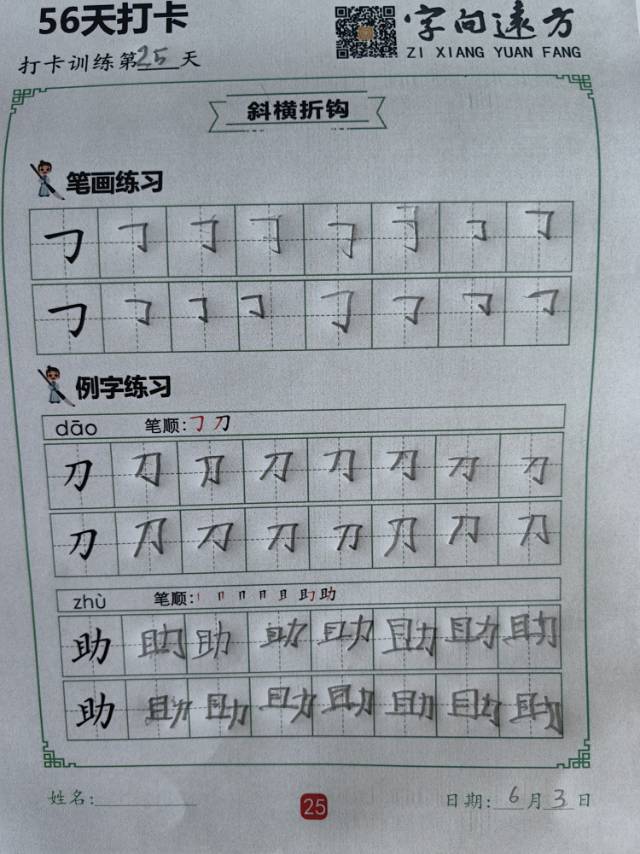 56天打卡
字向遠方
打卡训练第25天
ZI XIANG YUAN FANG
斜横折钩
笔画练习
㇆ ㇆ ㇆ ㇆ ㇆ ㇆ ㇆ ㇆
㇆ ㇆ ㇆ ㇆ ㇆ ㇆ ㇆ ㇆
例字练习
dāo 笔顺:㇆刀
刀 刀 刀 刀 刀 刀 刀 刀
刀 刀 刀 刀 刀 刀 刀 刀
zhù 笔顺: 助
助 助 助 助 助 助 助 助
助 助 助 助 助 助 助 助
姓名: 25 日期: 6月3日